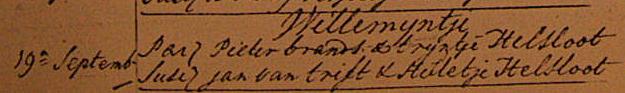 Willemyntje
19n Septemb. Par) Pieter brands & tryntje Helsloot
Susc) jan van trift & Heiletje Helsloot